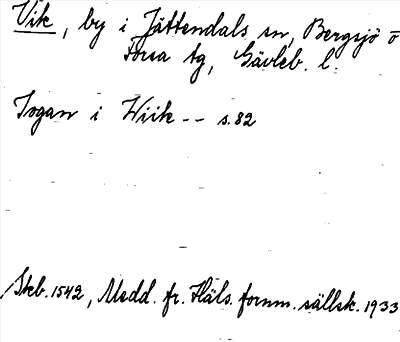 Vik, by i Jättendals sn, Bergsjö o
Forsa tg, Gävleb. l.
Jogan i Wiik -- s. 82
Skb. 1542, Medd. fr. Häls. fornm. sällsk. 1933